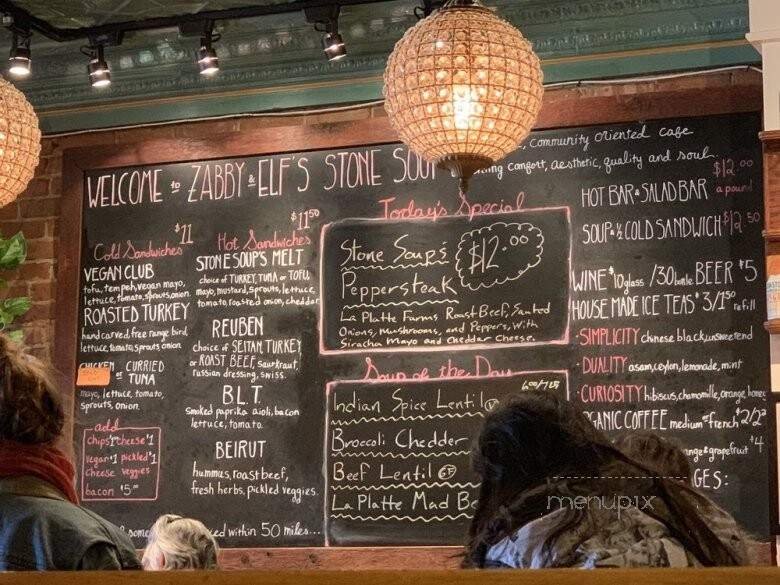 WELCOME to ZABBY & ELF'S STONE SOUP
community oriented cafe
comfort, aesthetic, quality and soul.
Cold Sandwiches $11
VEGAN CLUB
tofu, tempeh, vegan mayo,
lettuce, tomato, sprouts, onion.
ROASTED TURKEY
hand carved, free range bird
lettuce, tomato, sprouts onion
CHICKEN or CURRIED
TUNA
mayo, lettuce, tomato,
sprouts, onion.
add
chips $1 cheese $1
vegan $1 pickled $1
cheese veggies
bacon
Hot Sandwiches $11.50
STONE SOUP'S MELT
choice of TURKEY, TUNA or TOFU,
mayo, mustard, sprouts, lettuce,
tomato, roasted onion, cheddar
REUBEN
choice of SEITAN, TURKEY
or ROAST BEEF, Saurkraut,
russian dressing, swiss.
B.L.T.
Smoked paprika aioli, bacon
lettuce, tomato.
BEIRUT
hummus, roast beef,
fresh herbs, pickled veggies.
within 50 miles...
Today's Special
Stone Soup's $12.00
Peppersteak
La Platte Farms Roast Beef, Sauted
Onions, Mushrooms, and Peppers, With
Siracha Mayo and Cheddar Cheese.
Soup of the Day
Indian Spice Lentil
Broccoli Chedder
Beef Lentil GF
La Platte Mad
HOT BAR & SALAD BAR $12.00 a pound
SOUP & ½ COLD SANDWICH $12.50
WINE $10 glass / 30 bottle BEER $5
HOUSE MADE ICE TEAS $3/1.50 refill
SIMPLICITY chinese black, unsweetend
DUALITY asam, ceylon, lemonade, mint
CURIOSITY hibiscus, chamomille, orange, honey
ORGANIC COFFEE medium or french
grapefruit $4
menupix